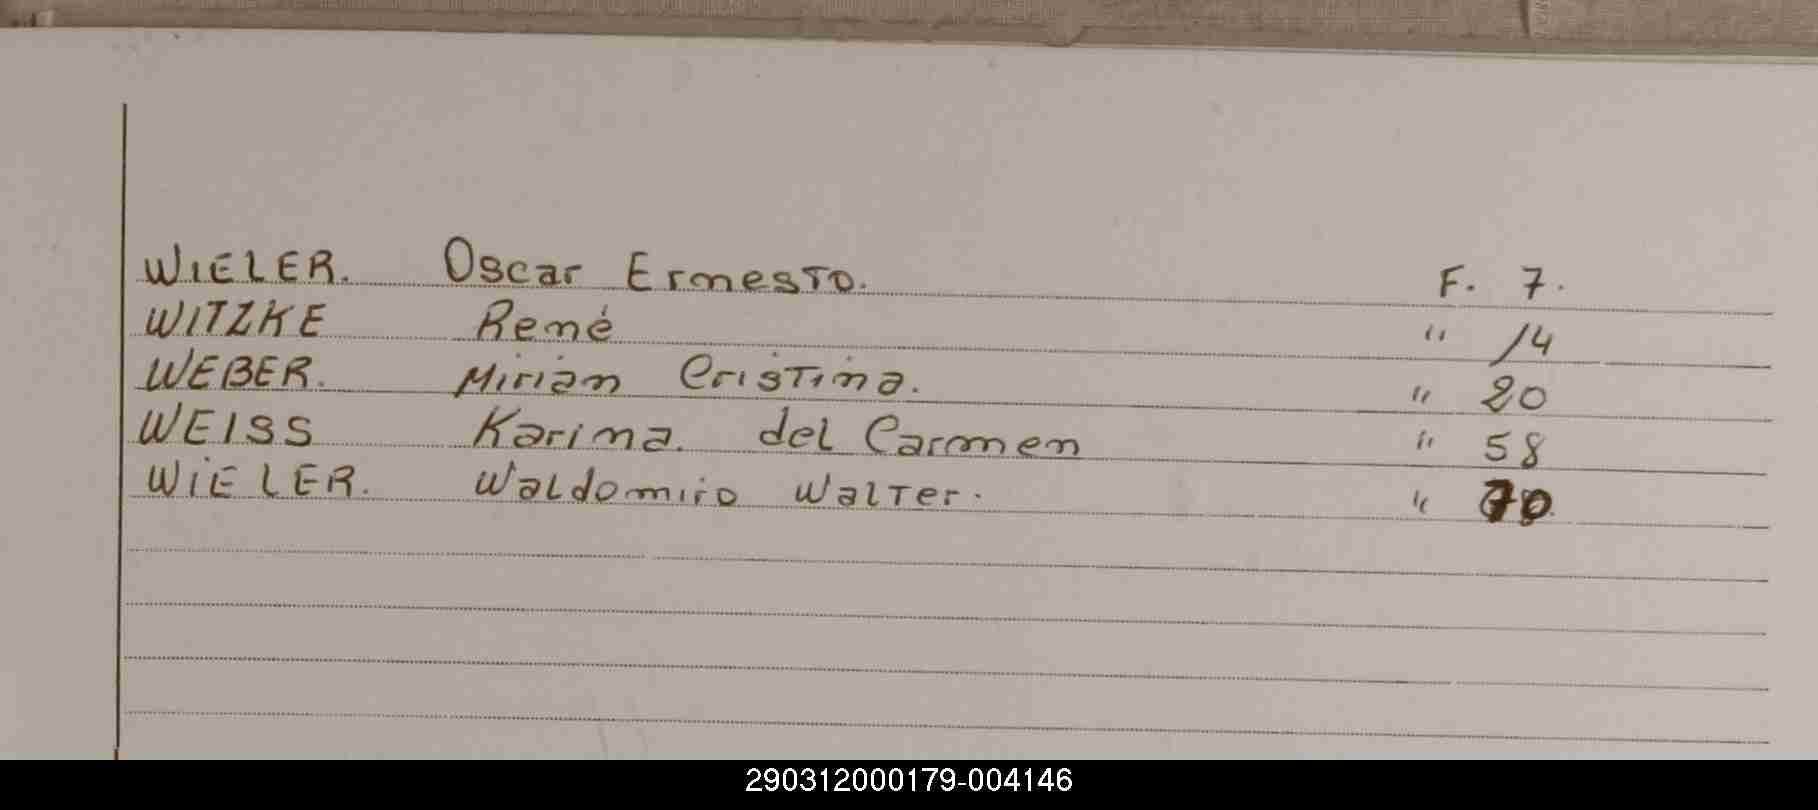 WIELER. Oscar Ernesto. F. 7.
WITZKE René " 14
WEBER. Mirian Cristina. " 20
WEISS Karina. del Carmen " 58
WIELER. Waldomiro Walter. " 70
290312000179-004146